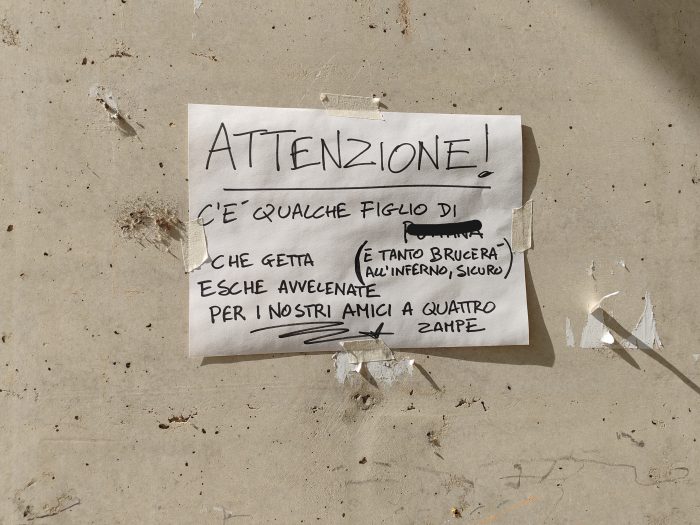 ATTENZIONE!
C'E' QUALCHE FIGLIO DI
(E TANTO BRUCERA'
ALL'INFERNO, SICURO)
CHE GETTA
ESCHE AVVELENATE
PER I NOSTRI AMICI A QUATTRO
ZAMPE